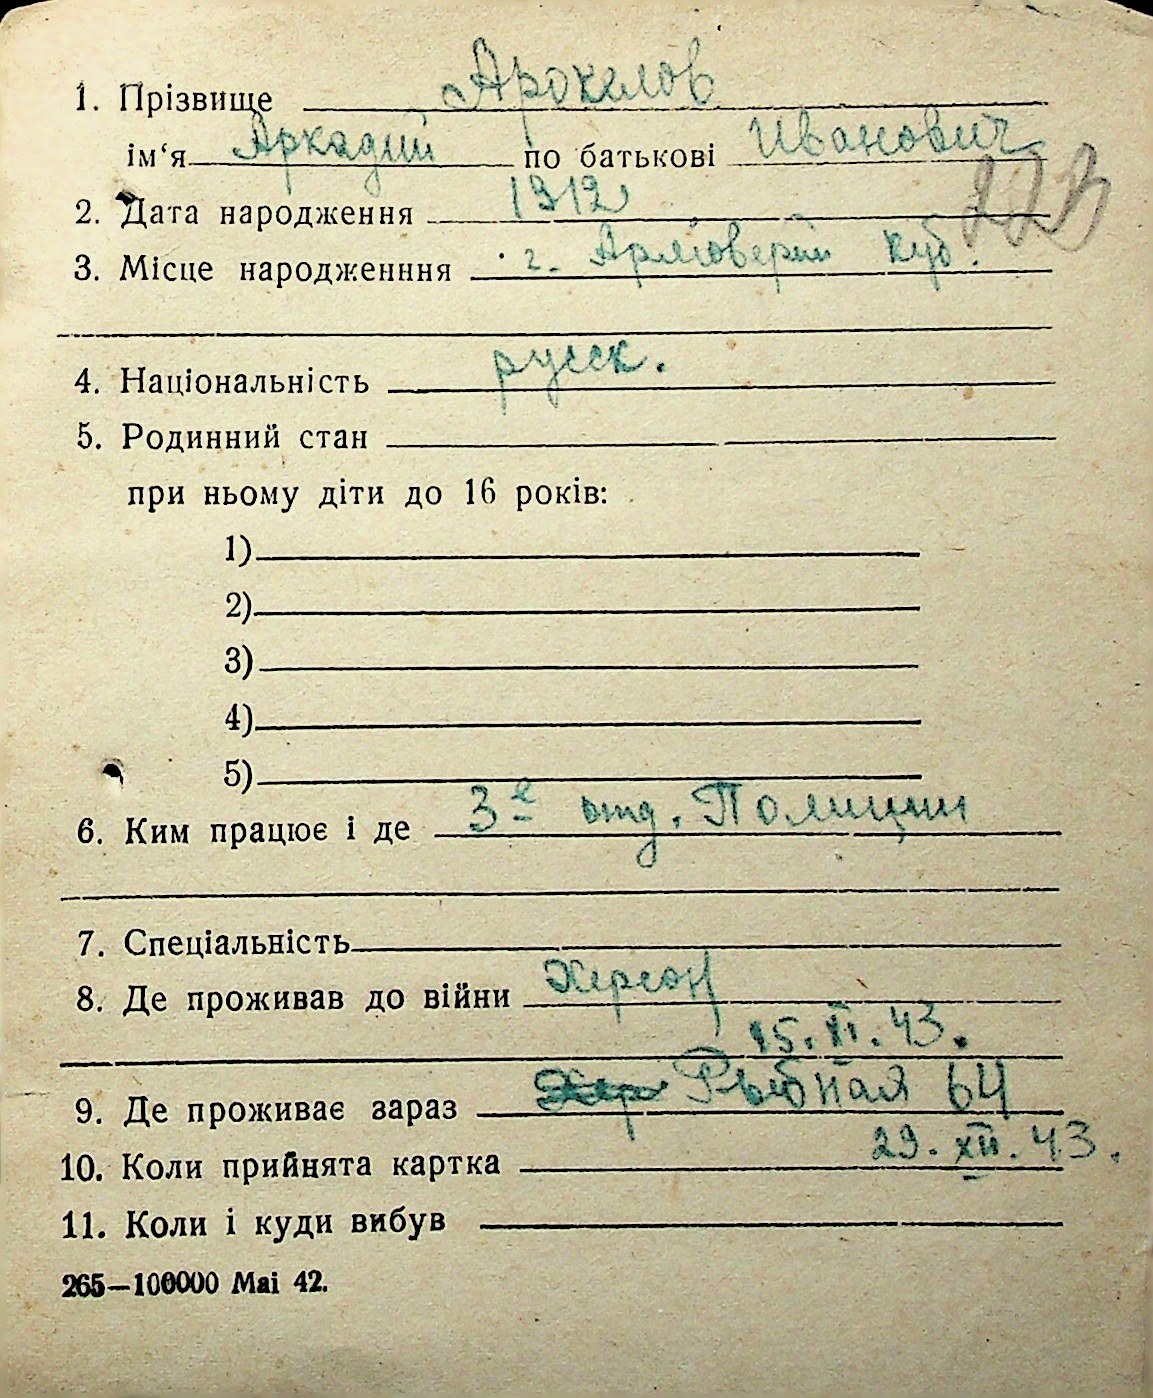 1. Прізвище Арокелов
ім‘я Аркадий по батькові Иванович
2. Дата народження 1912
3. Місце народженння г. Армоверий Куб.
4. Національність русск.
5. Родинний стан
при ньому діти до 16 років:
1)
2)
3)
4)
5)
6. Ким працює і де 3е отд. Полиции
7. Спеціальність
8. Де проживав до війни Херсон
15. XI. 43.
9. Де проживає зараз Рыбная 64
10. Коли прийнята картка 29. XII. 43.
11. Коли і куди вибув
265—100000 Маі 42.